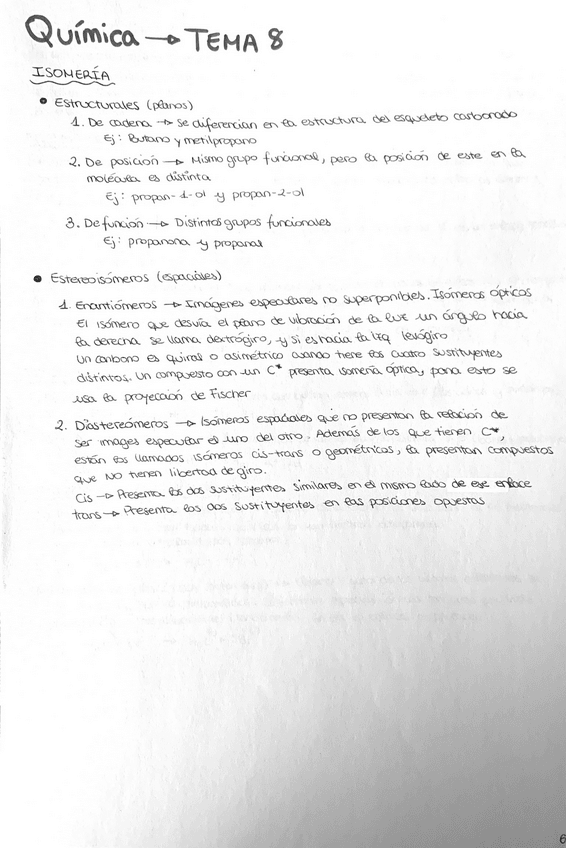 Química → TEMA 8
ISOMERÍA
• Estructurales (planos)
1. De cadena → Se diferencian en la estructura del esqueleto carbonado
Ej: Butano y metilpropano
2. De posición → Mismo grupo funcional, pero la posición de este en la
molécula es distinta
Ej: propan-1-ol y propan-2-ol
3. De función → Distintos grupos funcionales
Ej: propanona y propanal
• Estereoisómeros (espaciales)
1. Enantiómeros → Imágenes especulares no superponibles. Isómeros ópticos
El isómero que desvía el plano de vibración de la luz un ángulo hacia
la derecha se llama dextrógiro, y si es hacia la izq levógiro
Un carbono es quiral o asimétrico cuando tiene los cuatro sustituyentes
distintos. Un compuesto con un C* presenta isomería óptica, para esto se
usa la proyección de Fischer
2. Diastereómeros → Isómeros espaciales que no presentan la relación de
ser images especular el uno del otro. Además de los que tienen C*,
están los llamados isómeros cis-trans o geométricos, la presentan compuestos
que NO tienen libertad de giro.
Cis → Presenta los dos sustituyentes similares en el mismo lado de ese enlace
trans → Presenta los dos sustituyentes en las posiciones opuestas
6